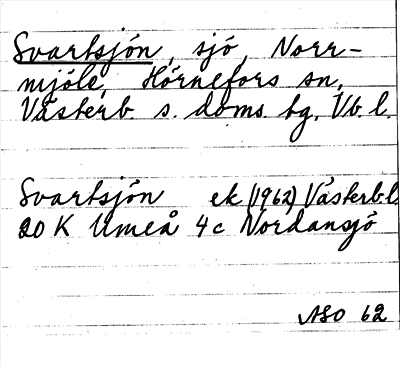 Svartsjön, sjö, Norr-
mjöle, Hörnefors sn,
Västerb. s. doms. tg, Vb. l.
Svartsjön ek (1962) Västerb. l.
20 K Umeå 4c Nordansjö
ASO 62